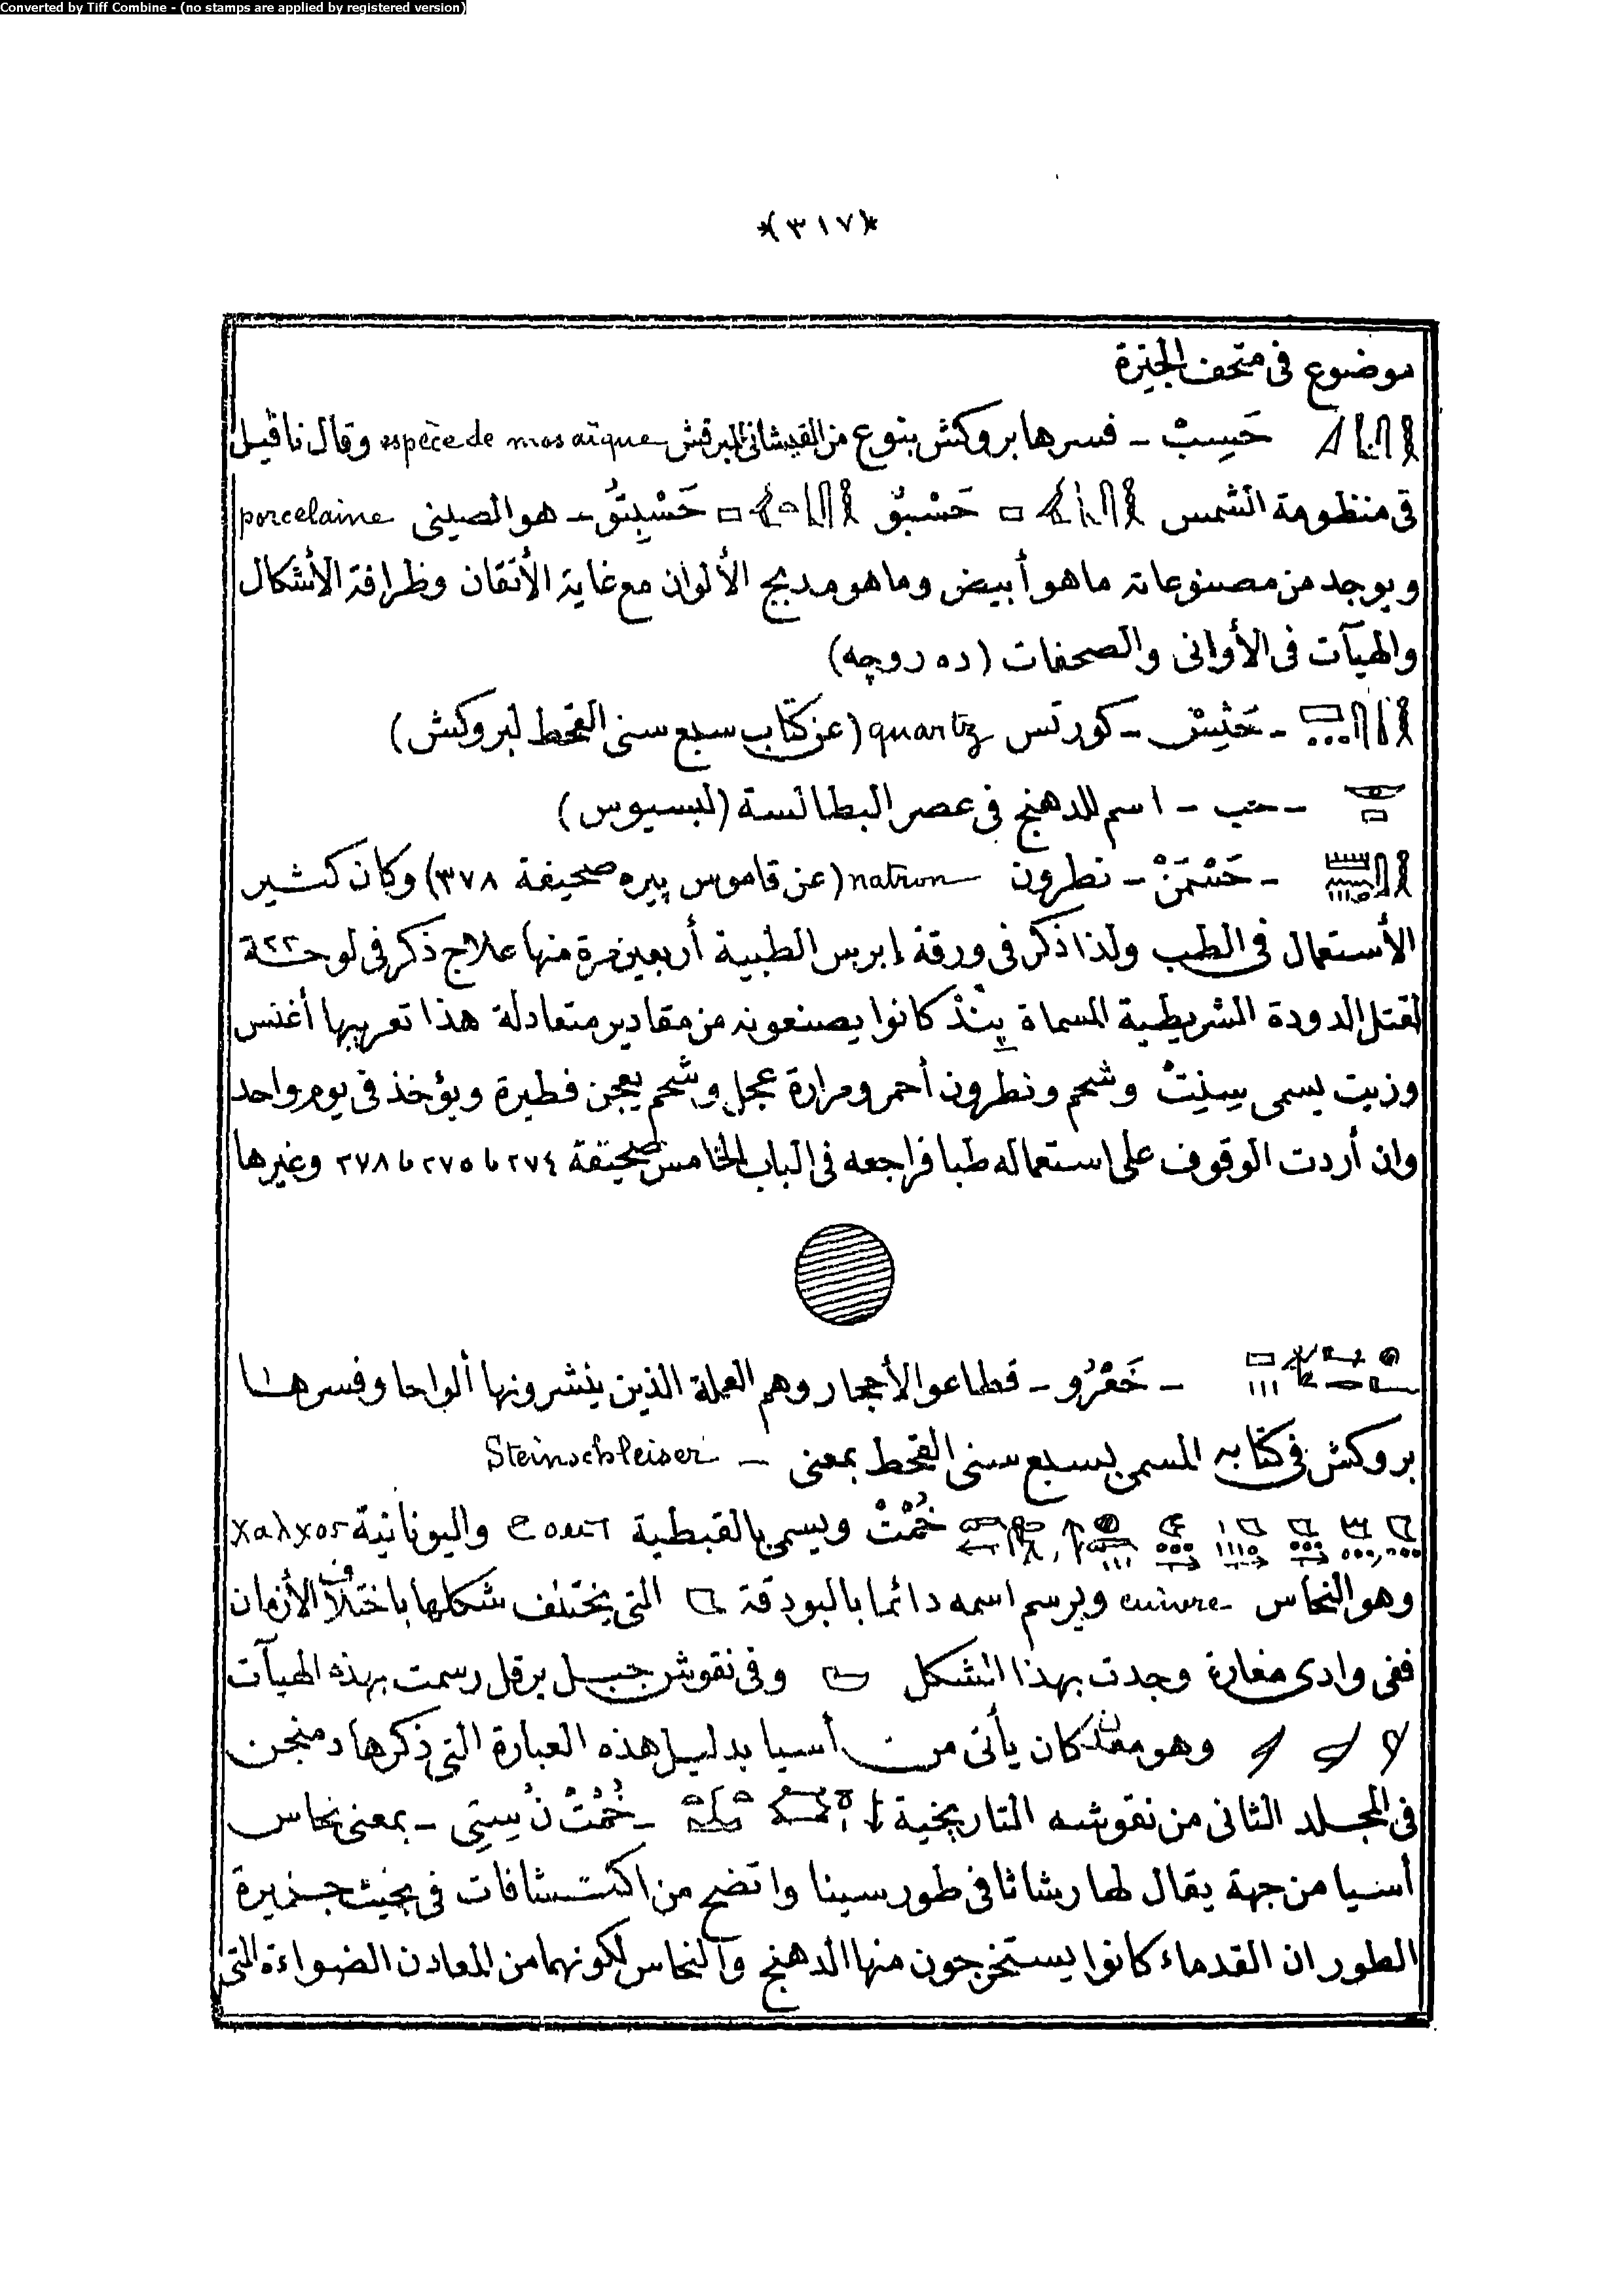 Converted by Tiff Combine - (no stamps are applied by registered version)
*(٣١٧)*
موضوع فى متحف الجيزة
حَسِبْ - فسرها بروكش بنوع من القيشانى المبرقش espèce de mosaïque وقال ناڤيل
فى منظومة الشمس حَسْبُق حَسْبِتُو - هو الصينى porcelaine
ويوجد من مصنوعاته ماهو أبيض وماهو مدبج الألوان مع غاية الأتقان وظرافة الأشكال
والهيآت فى الأوانى والصحفات (ده روچه)
- حَتِسْ - كورتس quartz (عن كتاب سبع سنى القحط لبروكش)
- حب - اسم للدهنج فى عصر البطالسة (لبسيوس)
- حَسْمَنْ - نطرون natron (عن قاموس پيره صحيفة ٣٧٨) وكان كثير
الأستعمال فى الطب ولذا ذكر فى ورقة إبرس الطبية أربعين مرة منها علاج ذكر فى لوحة ٢٢
لقتل الدودة الشريطية المسماة پِنْدْ كانوا يصنعونه من مقادير متعادلة هذا تعريبها أغنس
وزيت يسمى سِنِتْ وشحم ونطرون أحمر ومرارة عجل وشحم يعجن فطيرة ويؤخذ فى يوم واحد
وان أردت الوقوف على استعماله طبا فراجعه فى الباب الخامس صحيفة ٢٧٤ و ٢٧٥ و ٢٧٨ وغيرها
- خَعْرُو - قطاعو الأحجار وهم العملة الذين ينشرونها ألواحا وفسرها
بروكش فى كتابه المسمى بسبع سنى القحط بمعنى - Steinschleiser
خُمْتْ ويسمى بالقبطية ϩⲟⲙⲧ واليونانية χαλχος
وهو النحاس cuivre ويرسم اسمه دائما بالبودقة التى يختلف شكلها باختلاف الأزمان
ففى وادى مغارة وجدت بهذا الشكل وفى نقوش جبل برقل رسمت بهذه الهيآت
وهو معدن كان يأتى من أسيا بدليل هذه العبارة التى ذكرها دمنجن
فى المجلد الثانى من نقوشه التاريخية - خُمْتْ نُ سِتِى - بمعنى نحاس
أسيا من جهة يقال لها ريشاثا فى طور سينا واتضح من اكتشافات فى بخيث جزيرة
الطور ان القدماء كانوا يستخرجون منها الدهنج والنحاس لكونهما من المعادن الضواءة التى